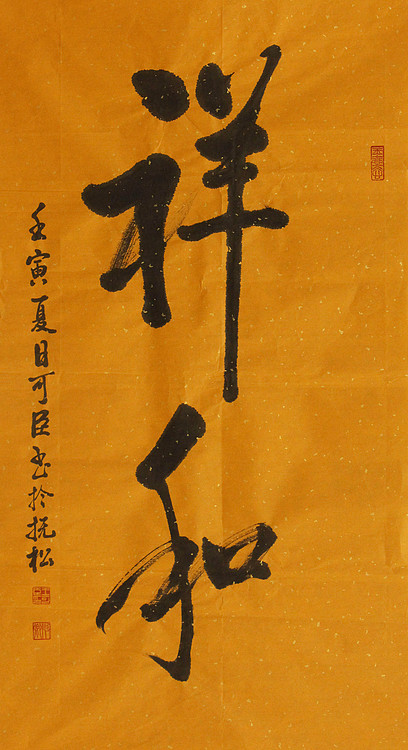 祥和
壬寅夏日可臣书於抚松